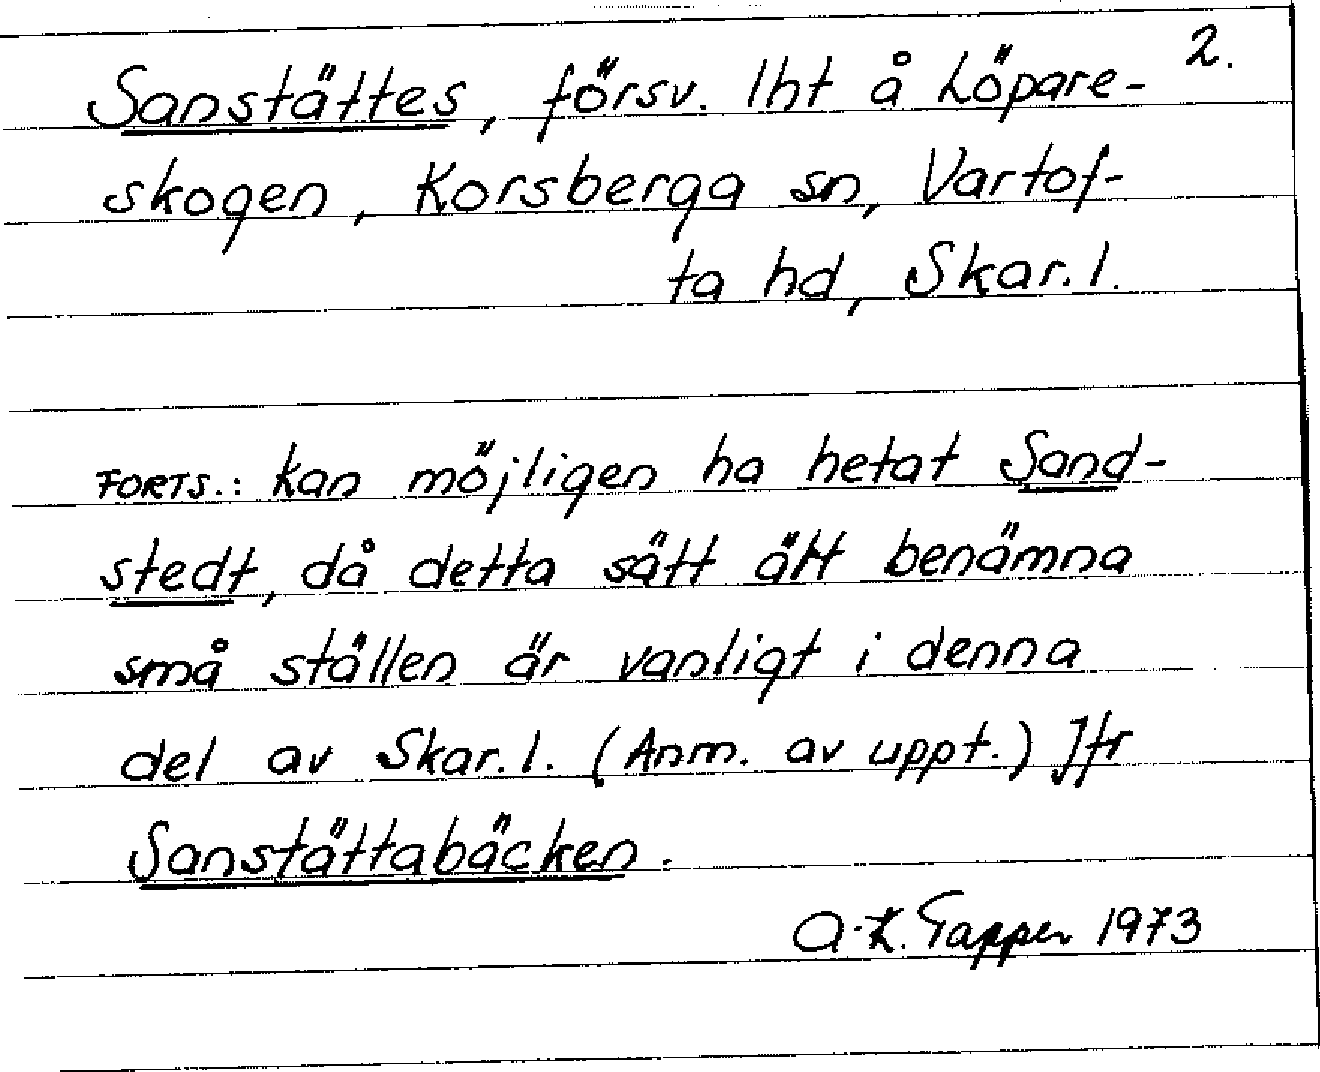 2.
Sanstättes, försv. lht å Löpare-
skogen, Korsberga sn, Vartof-
ta hd, Skar. l.
FORTS.: kan möjligen ha hetat Sand-
stedt, då detta sätt att benämna
små ställen är vanligt i denna
del av Skar. l. (Anm. av uppt.) Jfr
Sanstättabäcken.
A-K. Tapper 1973